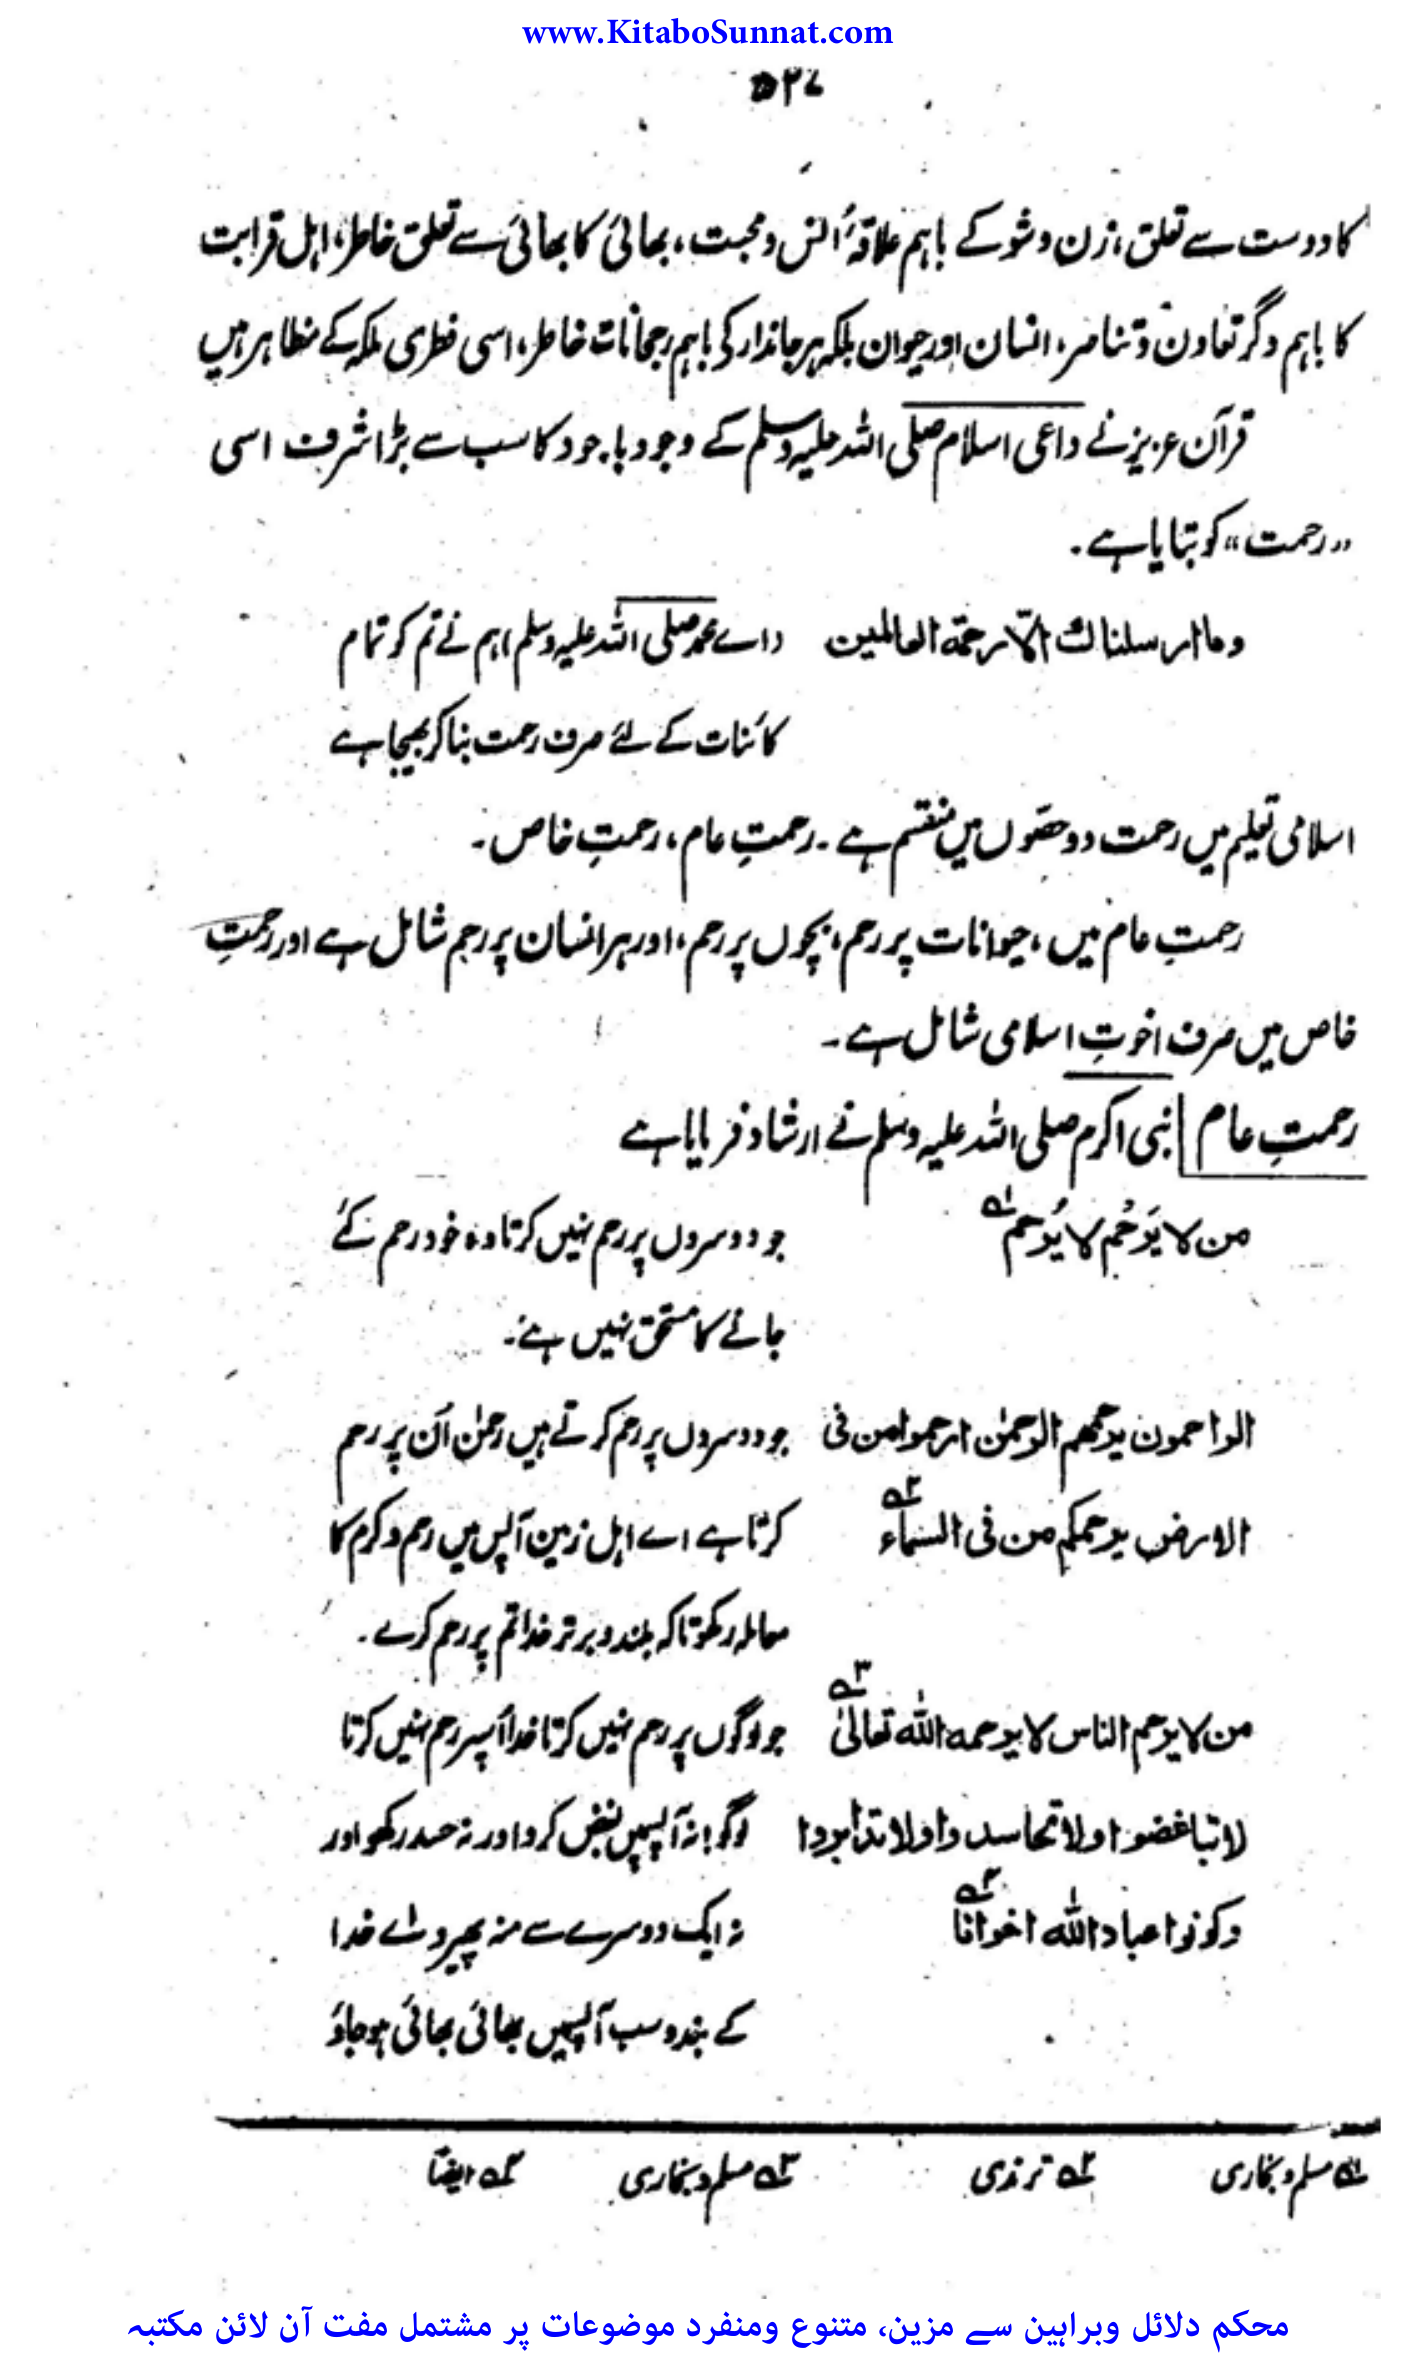 www.KitaboSunnat.com
۵۲۷
کا دوست سے تعلق، زن و شو کے باہم علاقۂ اُنس و محبت، بھائی کا بھائی سے تعلقِ خاطر، اہل قرابت
کا باہم دگر تعاون و تناصر، انسان اور حیوان بلکہ ہر جاندار کی باہم رجحانات خاطر، اسی فطری ملکہ کے مظاہر ہیں
قرآن عزیز نے داعی اسلام صلی اللہ علیہ وسلم کے وجود باجود کا سب سے بڑا شرف اسی
"رحمت" کو بتایا ہے۔
وما ارسلناك الا رحمة العالمین (اے محمد صلی اللہ علیہ وسلم) ہم نے تم کو تمام
کائنات کے لئے صرف رحمت بنا کر بھیجا ہے
اسلامی تعلیم میں رحمت دو حصّوں میں منقسم ہے۔ رحمتِ عام، رحمتِ خاص۔
رحمتِ عام میں، حیوانات پر رحم، بچوں پر رحم، اور ہر انسان پر رحم شامل ہے اور رحمتِ
خاص میں صرف اخوتِ اسلامی شامل ہے۔
رحمتِ عام | نبی اکرم صلی اللہ علیہ وسلم نے ارشاد فرمایا ہے
من لا یَرحُم لا یُرحم ؂۱ جو دوسروں پر رحم نہیں کرتا وہ خود رحم کئے
جانے کا مستحق نہیں ہے۔
الراحمون یرحمهم الرحمٰن ارحموا من فی جو دوسروں پر رحم کرتے ہیں رحمٰن اُن پر رحم
الارض یرحمکم من فی السماء ؂۲ کرتا ہے اے اہل زمین آپس میں رحم و کرم کا
معاملہ رکھو تاکہ بلند و برتر خدا تم پر رحم کرے۔
من لا یرحم الناس لا یرحمه الله تعالیٰ ؂۳ جو لوگوں پر رحم نہیں کرتا خدا اُسپر رحم نہیں کرتا
لا تباغضوا ولا تحاسدوا ولا تدابروا لوگو! نہ آپسمیں بغض کرو اور نہ حسد رکھو اور
وکونوا عباد الله اخوانا ؂۴ نہ ایک دوسرے سے منہ پھیرو اے خدا
کے بندو سب آپسمیں بھائی بھائی ہو جاؤ
؂۱ مسلم و بخاری ؂۲ ترمذی ؂۳ مسلم و بخاری ؂۴ ایضاً
محکم دلائل وبراہین سے مزین، متنوع ومنفرد موضوعات پر مشتمل مفت آن لائن مکتبہ